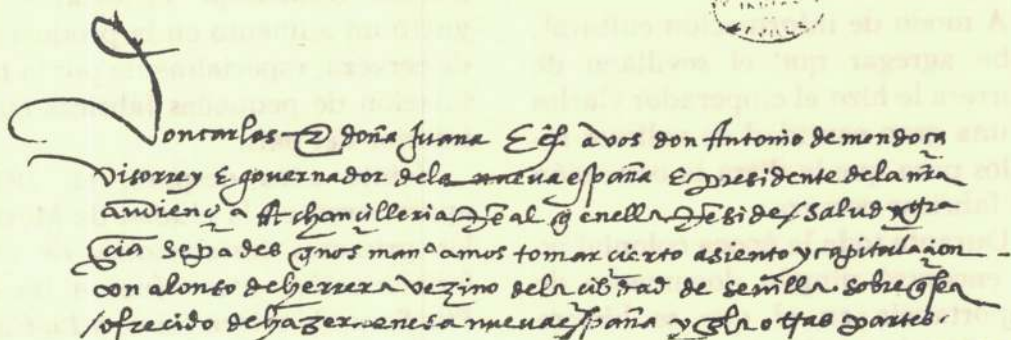 Don carlos E doña Juana E cª. a vos don Antonio de mendoça
visorrey E governador dela nueva españa E presidente dela nrã
audiençia A chançilleria Real q en ella Reside / Salud y gra
çia sepades q nos mandamos tomar çierto asiento y capitulaçion
con alonso de herrera vezino dela cibdad de sevilla sobre q se a
ofreçido de hazer en esa nueva España y otras partes.